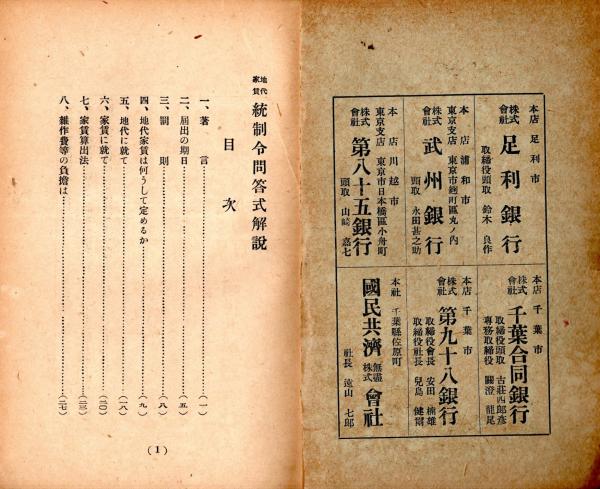 本店 足利市
株式會社 足利銀行
取締役頭取 鈴木良作
本店 浦和市
東京支店 東京市麹町區丸ノ內
株式會社 武州銀行
頭取 永田甚之助
本店 川越市
東京支店 東京市日本橋區小舟町
株式會社 第八十五銀行
頭取 山崎嘉七
本店 千葉市
株式會社 千葉合同銀行
取締役頭取 古莊四郎彥
專務取締役 關 澄 龍尾
本店 千葉市
株式會社 第九十八銀行
取締役會長 安田 楠雄
取締役社長 兒島 健爾
本社 千葉縣佐原町
國民共濟無盡株式會社
社長 遠山七郎
地代家賃 統制令問答式解說
目次
一、著言……(一)
二、屆出の期日……(五)
三、罰則……(八)
四、地代家賃は何うして定めるか……(九)
五、地代に就て……(一八)
六、家賃に就て……(二〇)
七、家賃算出法……(二三)
八、雜作費等の負擔は……(二七)
(1)